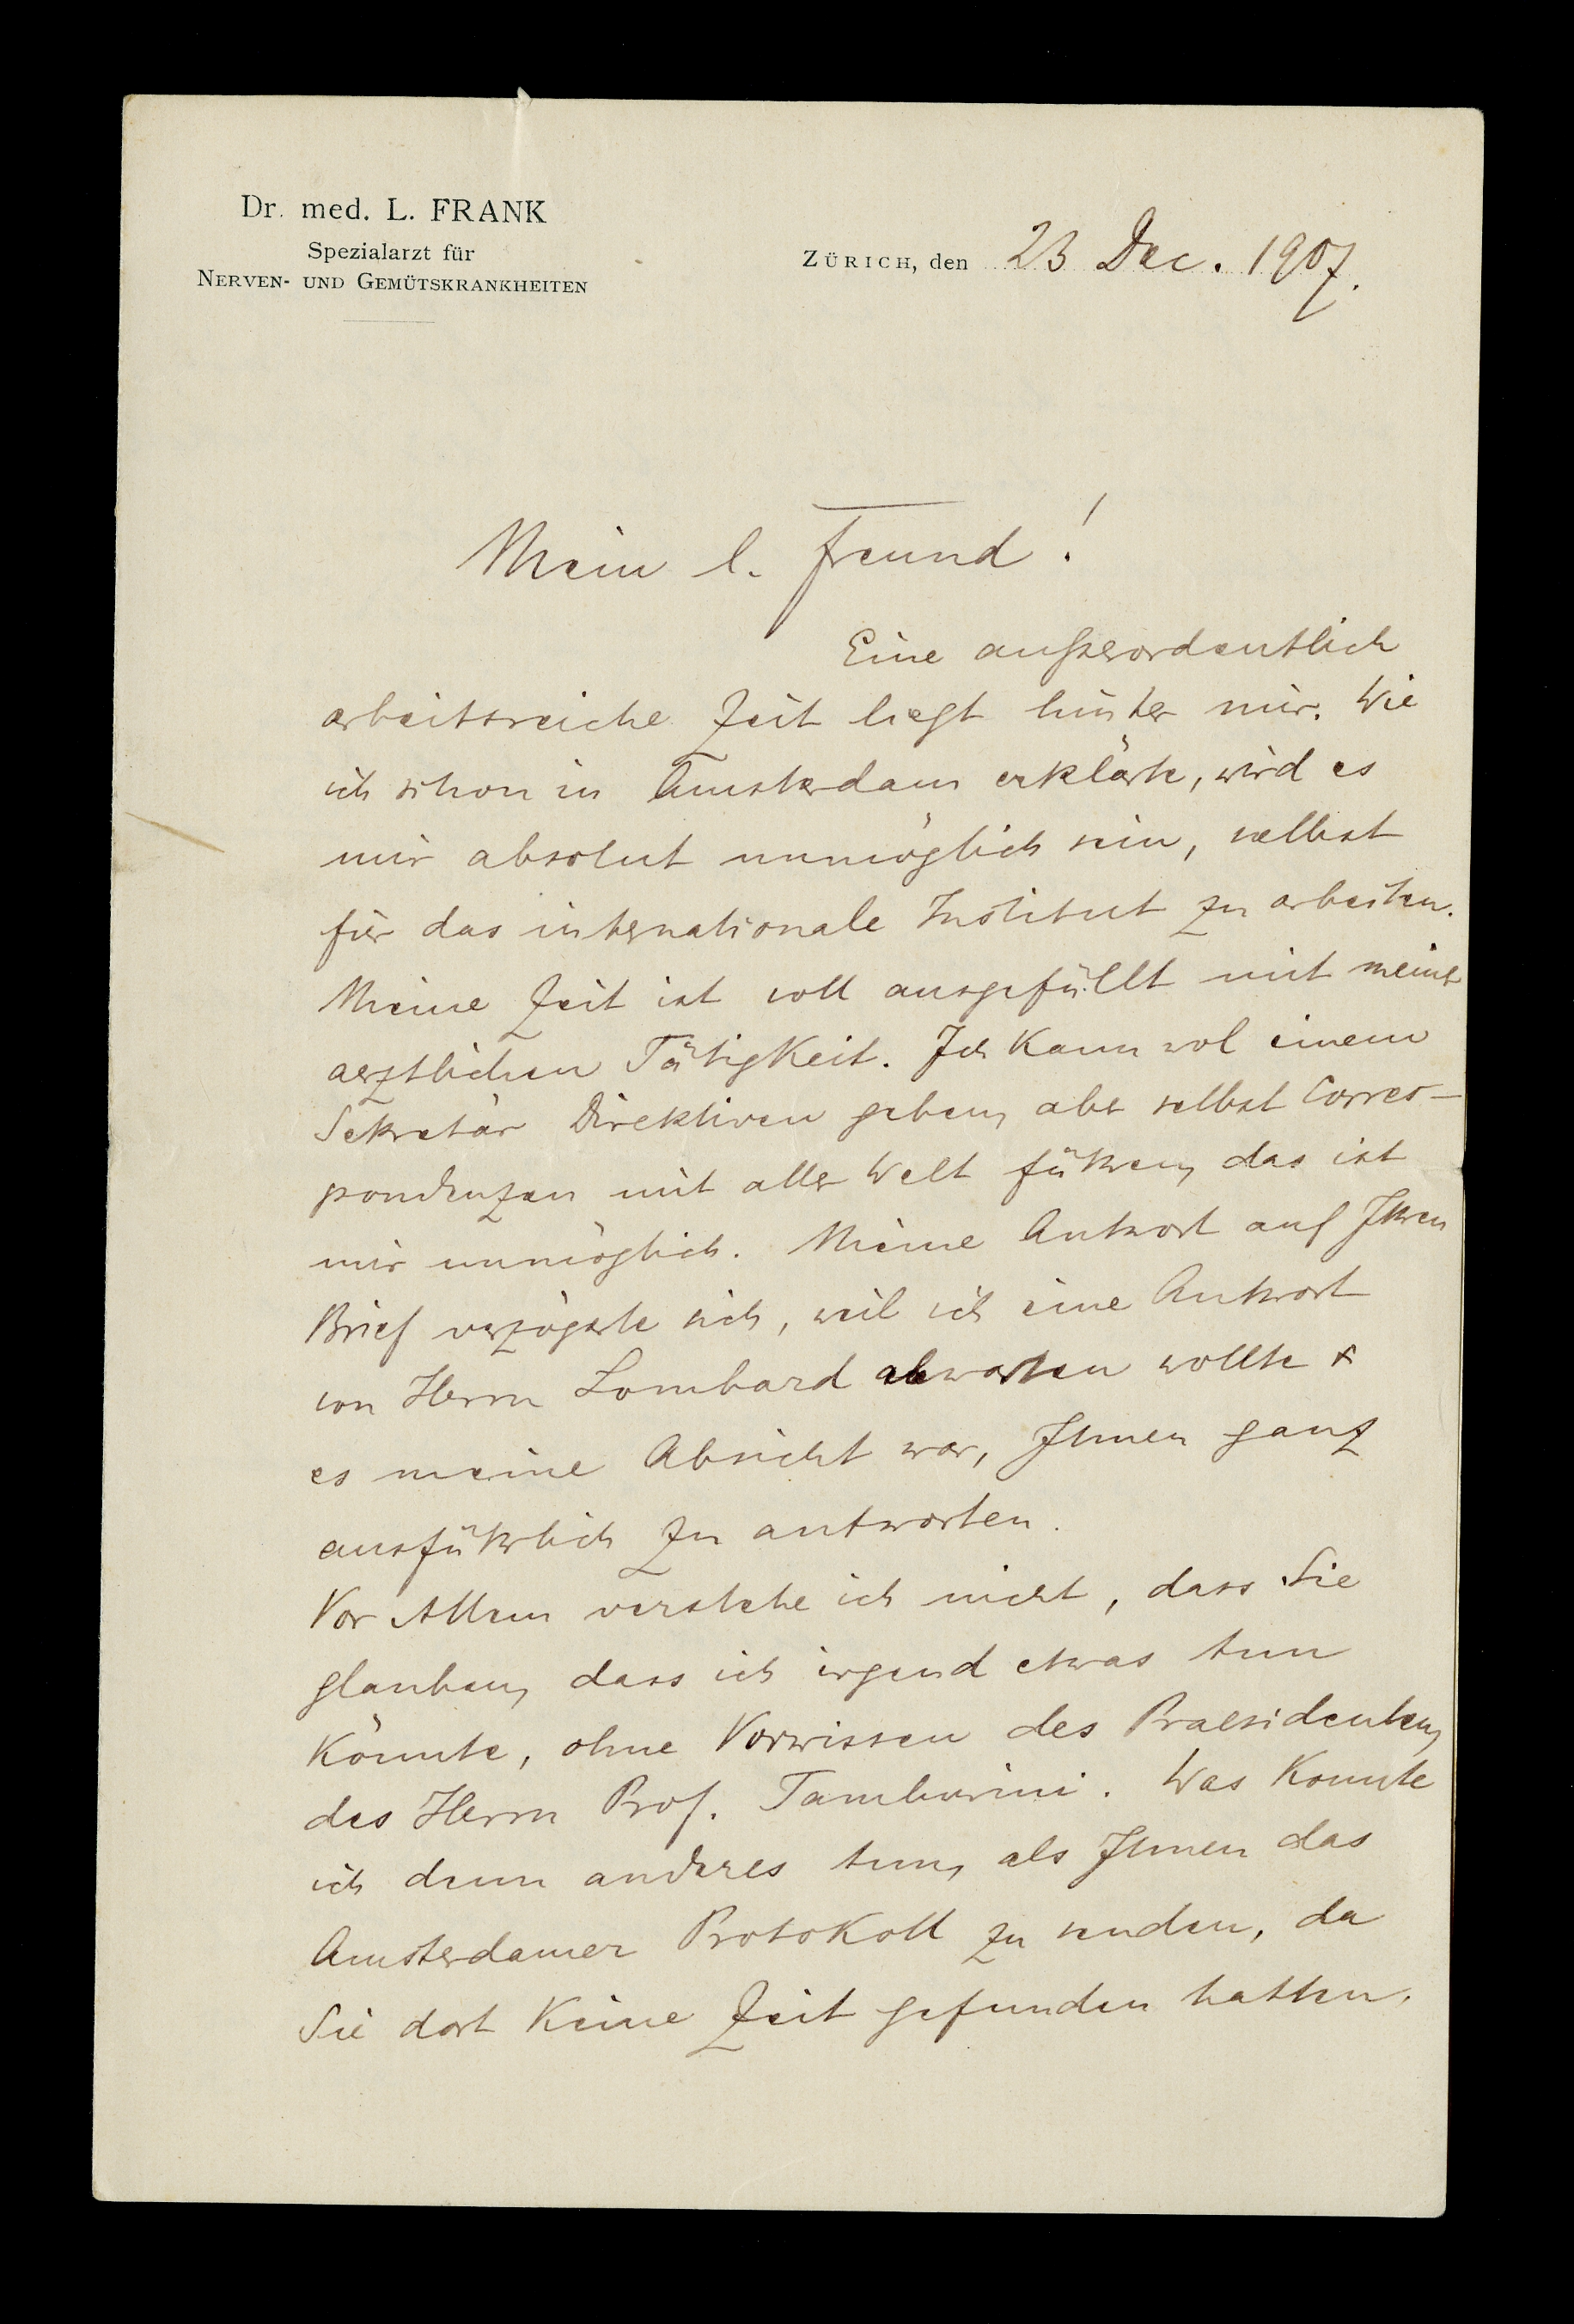 Dr. med. L. FRANK
Spezialarzt für
NERVEN- UND GEMÜTSKRANKHEITEN
ZÜRICH, den 23 Dec. 1907.
Mein l. Freund!
Eine außerordentlich
arbeitsreiche Zeit liegt hinter mir. Wie
ich schon in Amsterdam erklärte, wird es
mir absolut unmöglich sein, selbst
für das internationale Institut zu arbeiten.
Meine Zeit ist voll ausgefüllt mit meiner
aerztlichen Tätigkeit. Ich kann wol einem
Sekretär Direktiven geben, aber selbst Corres-
pondenzen mit aller Welt führen, das ist
mir unmöglich. Meine Antwort auf Ihren
Brief verzögerte sich, weil ich eine Antwort
von Herrn Lombard abwarten wollte &
es meine Absicht war, Ihnen ganz
ausführlich zu antworten.
Vor Allem verstehe ich nicht, dass Sie
glauben, dass ich irgend etwas tun
könnte, ohne Vorwissen des Praesidenten,
des Herrn Prof. Tamburini. Was konnte
ich denn anderes tun, als Ihnen das
Amsterdamer Protokoll zu senden, da
Sie dort keine Zeit gefunden hatten.